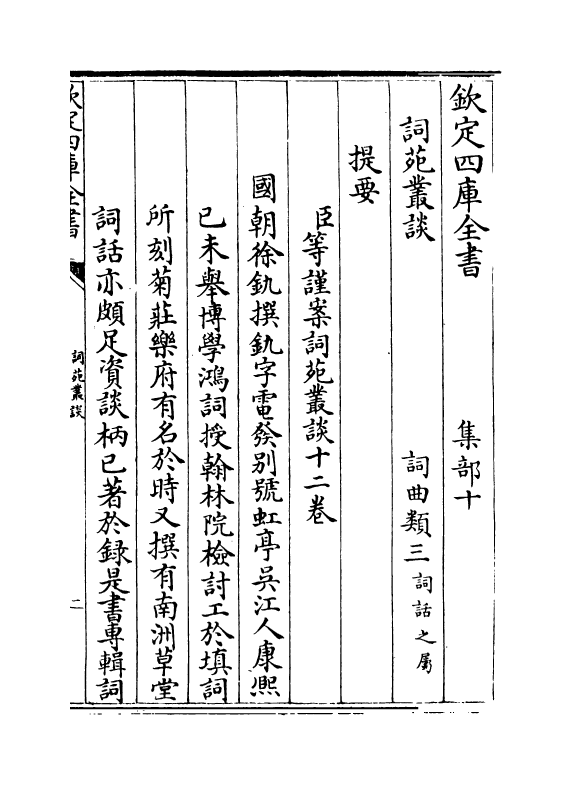 欽定四庫全書　集部十
詞苑叢談　詞曲類三詞話之屬
提要
臣等謹案詞苑叢談十二卷
國朝徐釚撰釚字電發別號虹亭吳江人康熙
已未舉博學鴻詞授翰林院檢討工於填詞
所刻菊莊樂府有名於時又撰有南洲草堂
詞話亦頗足資談柄已著於録是書專輯詞
欽定四庫全書
詞苑叢談